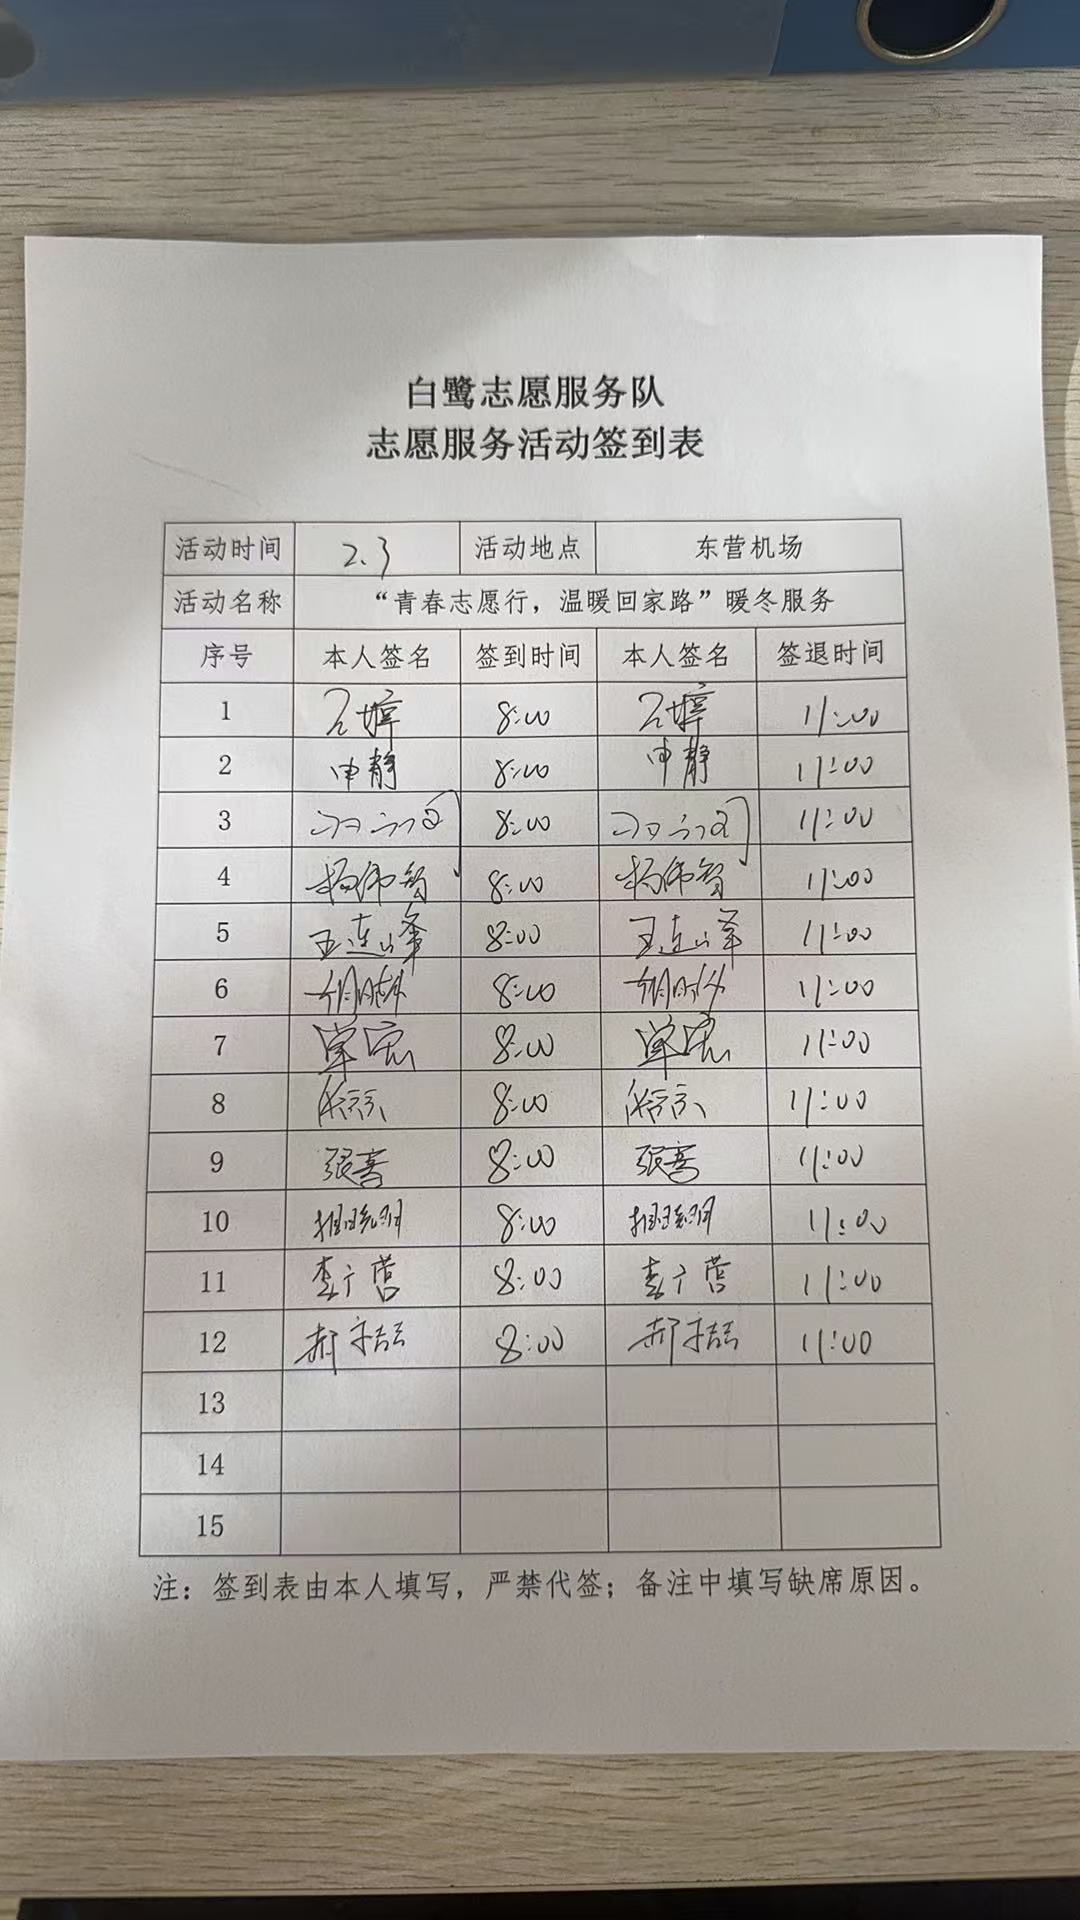 白鹭志愿服务队
志愿服务活动签到表
活动时间 2.3 活动地点 东营机场
活动名称 “青春志愿行，温暖回家路”暖冬服务
序号 本人签名 签到时间 本人签名 签退时间
1 8:00 11:00
2 申静 8:00 申静 11:00
3 8:00 11:00
4 杨伟智 8:00 杨伟智 11:00
5 王连峰 8:00 王连峰 11:00
6 8:00 11:00
7 8:00 11:00
8 8:00 11:00
9 8:00 11:00
10 8:00 11:00
11 李广营 8:00 李广营 11:00
12 郝 8:00 郝 11:00
13
14
15
注：签到表由本人填写，严禁代签；备注中填写缺席原因。